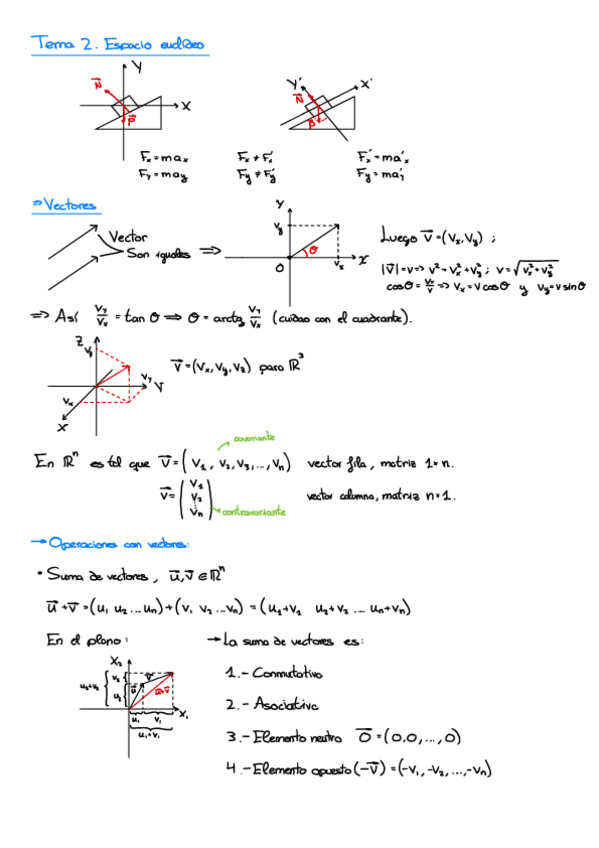 Tema 2. Espacio euclídeo
Y
N
X
P
Y'
X'
N
P
Fx = max Fx ≠ F'x F'x = ma'x
Fy = may Fy ≠ F'y F'y = ma'y
⇒ Vectores
Vector
Son iguales ⇒
y
vy
θ
O
vx
x
Luego v⃗ = (vx, vy) ;
|v⃗| = v ⇒ v² = vx² + vy² ; v = √(vx² + vy²)
cosθ = vx/v ⇒ vx = v cosθ y vy = v sinθ
⇒ Así vy/vx = tan θ ⇒ θ = arctg vy/vx (cuidao con el cuadrante).
Z
vz
vy
Y
vx
X
v⃗ = (vx, vy, vz) para ℝ³
covariante
En ℝⁿ es tal que v⃗ = (v1, v2, v3, ..., vn) vector fila, matriz 1×n.
v⃗ = (v1 v2 ⋮ vn) vector columna, matriz n×1.
contravariante
→ Operaciones con vectores:
• Suma de vectores, u⃗, v⃗ ∈ ℝⁿ
u⃗ + v⃗ = (u1 u2 ... un) + (v1 v2 ... vn) = (u1+v1 u2+v2 ... un+vn)
En el plano: → La suma de vectores es:
X2
u2+v2
v2
u2
u⃗
v⃗
u⃗+v⃗
X1
u1
v1
u1+v1
1.- Conmutativa
2.- Asociativa
3.- Elemento neutro 0⃗ = (0,0,...,0)
4.- Elemento opuesto (-v⃗) = (-v1, -v2, ..., -vn)